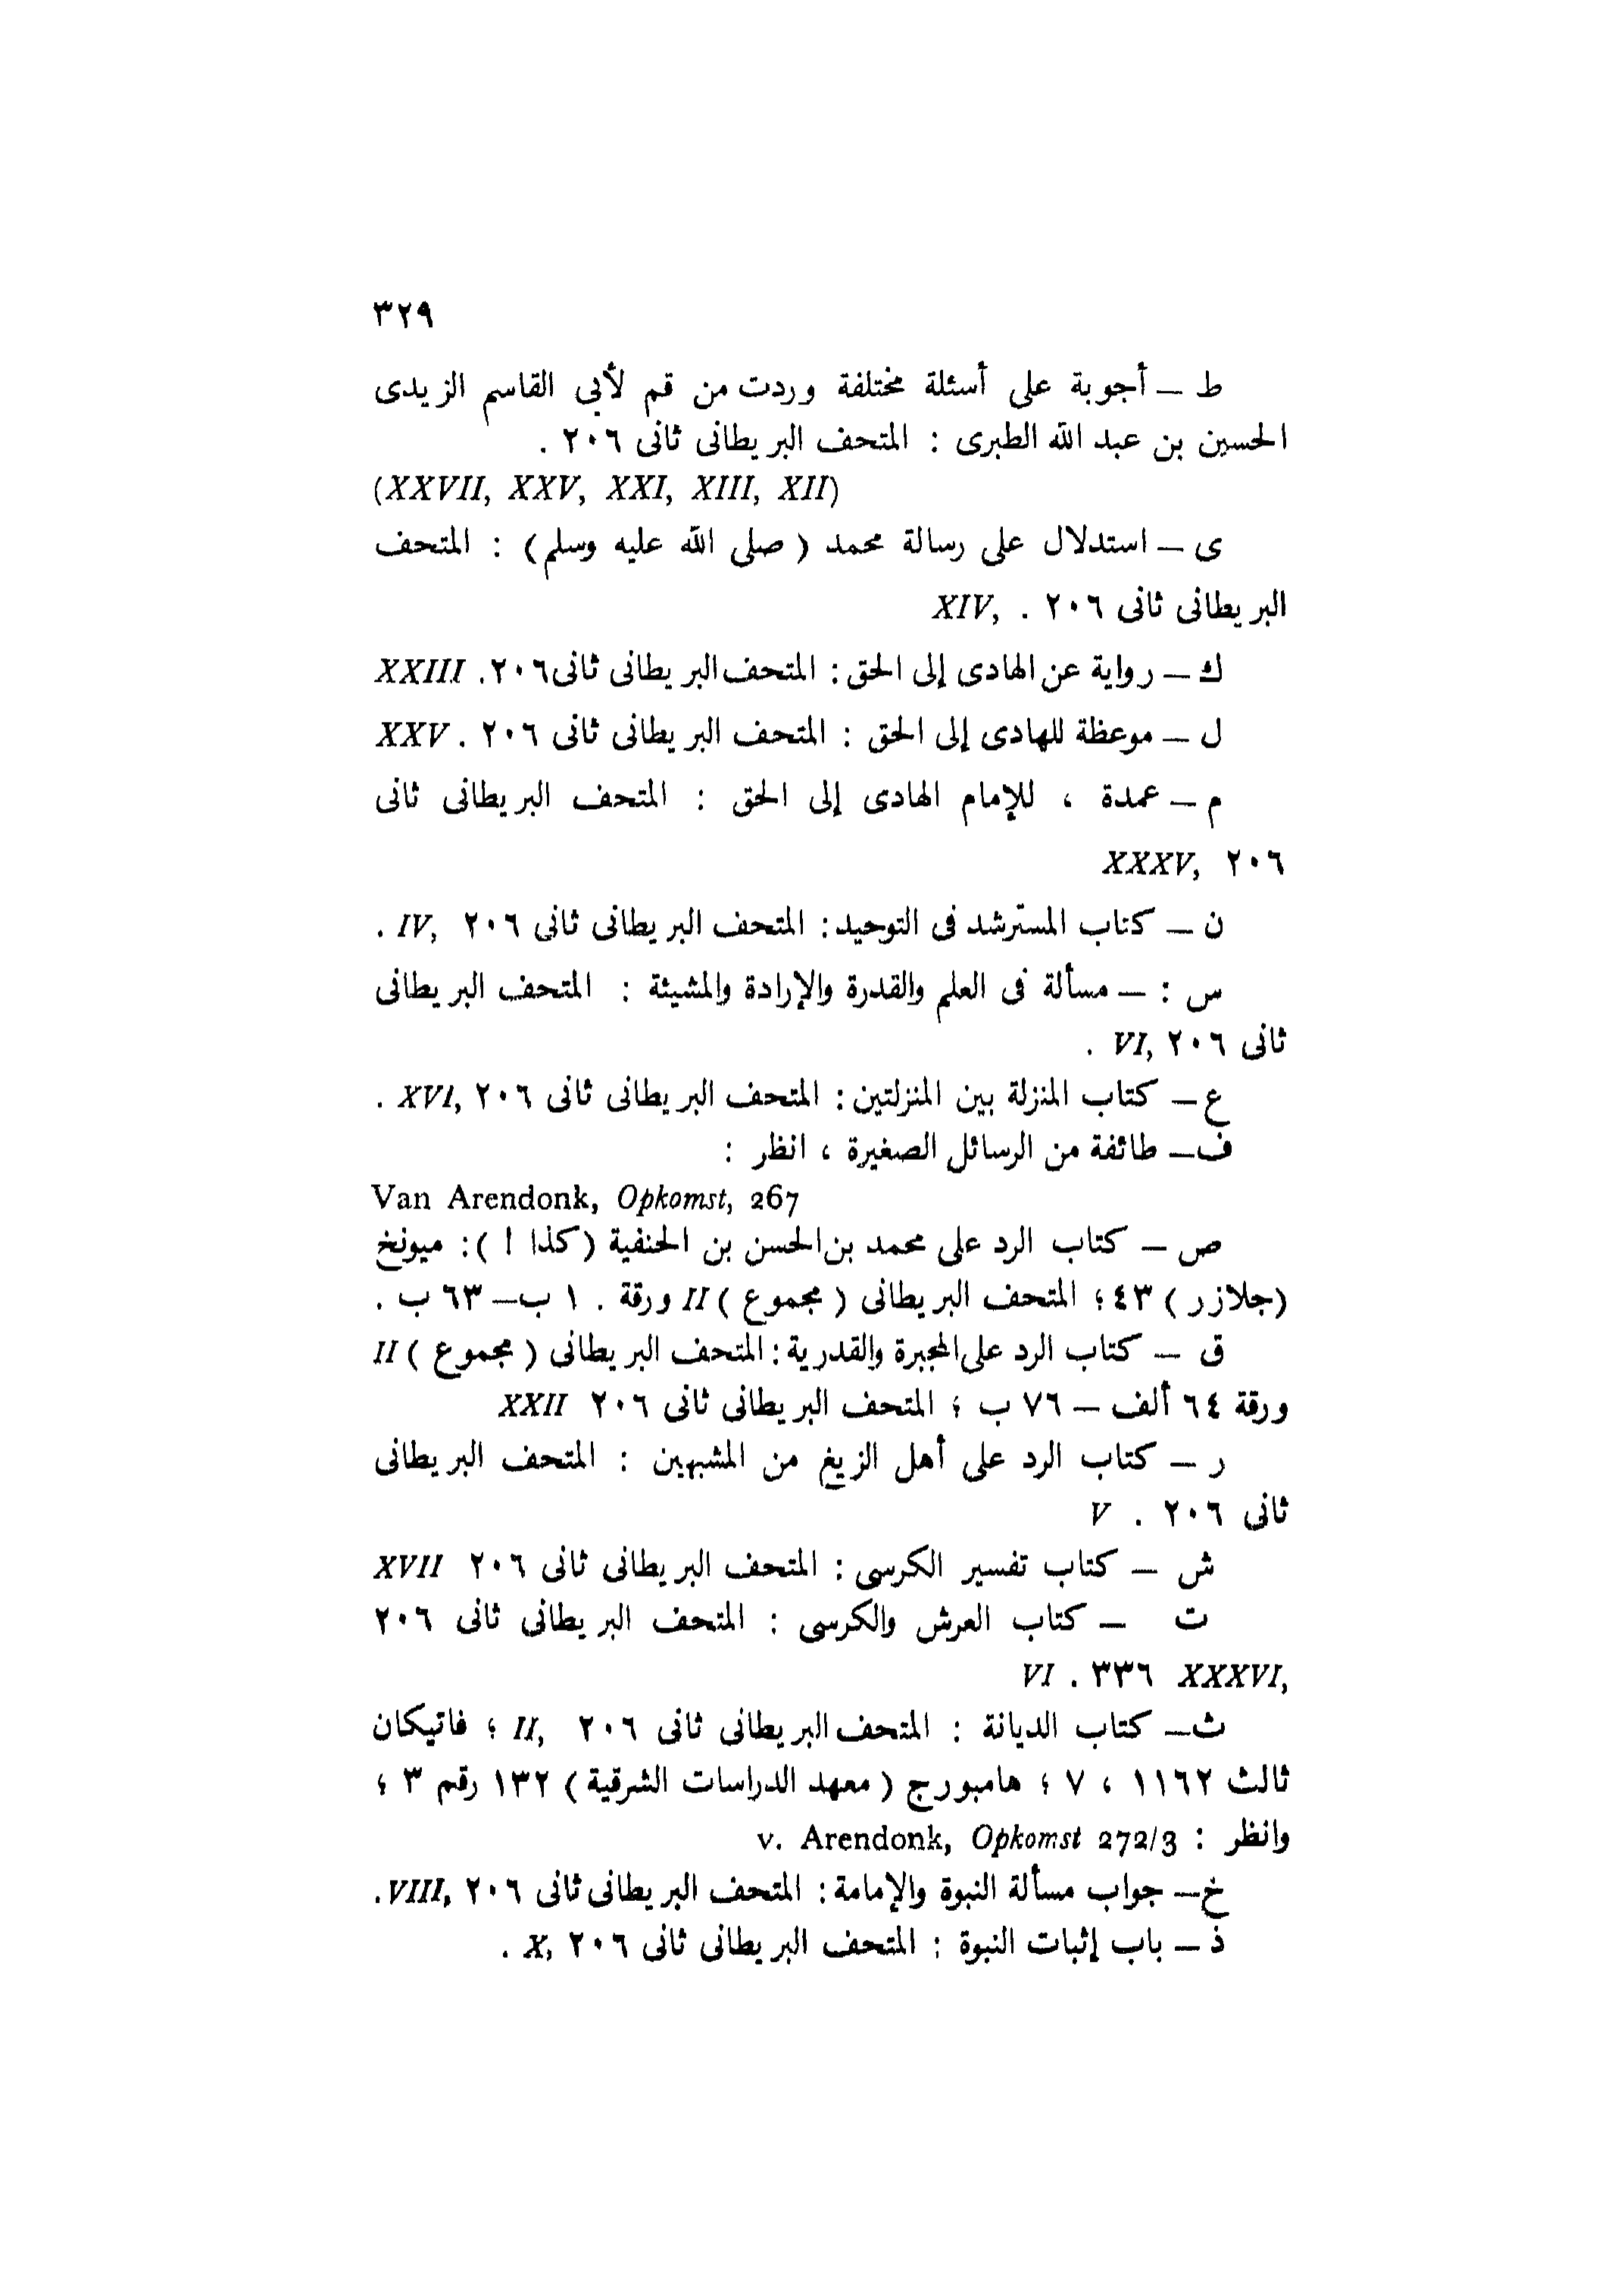 ٣٢٩
ط – أجوبة على أسئلة مختلفة وردت من قم لأبى القاسم الزيدى
الحسين بن عبد الله الطبرى : المتحف البريطانى ثانى ٢٠٦ .
(XXVII, XXV, XXI, XIII, XII)
ى – استدلال على رسالة محمد ( صلى الله عليه وسلم ) : المتحف
البريطانى ثانى ٢٠٦ . XIV,
ك – رواية عن الهادى إلى الحق : المتحف البريطانى ثانى ٢٠٦. XXIII
ل – موعظة للهادى إلى الحق : المتحف البريطانى ثانى ٢٠٦ . XXV
م – عمدة ، للإمام الهادى إلى الحق : المتحف البريطانى ثانى
٢٠٦ XXXV,
ن – كتاب المسترشد فى التوحيد : المتحف البريطانى ثانى ٢٠٦ IV, .
س : – مسألة فى العلم والقدرة والإرادة والمشيئة : المتحف البريطانى
ثانى ٢٠٦ VI, .
ع – كتاب المنزلة بين المنزلتين : المتحف البريطانى ثانى ٢٠٦ XVI, .
ف – طائفة من الرسائل الصغيرة ، انظر :
Van Arendonk, Opkomst, 267
ص – كتاب الرد على محمد بن الحسن بن الحنفية (كذا ! ) : ميونخ
(جلازر ) ٤٣ ؛ المتحف البريطانى ( مجموع ) II ورقة . ١ ب – ٦٣ ب .
ق – كتاب الرد على المجبرة والقدرية : المتحف البريطانى ( مجموع ) II
ورقة ٦٤ ألف – ٧٦ ب ؛ المتحف البريطانى ثانى ٢٠٦ XXII
ر – كتاب الرد على أهل الزيغ من المشبهين : المتحف البريطانى
ثانى ٢٠٦ . V
ش – كتاب تفسير الكرسى : المتحف البريطانى ثانى ٢٠٦ XVII
ت – كتاب العرش والكرسى : المتحف البريطانى ثانى ٢٠٦
XXXVI, ٣٣٦ . VI
ث – كتاب الديانة : المتحف البريطانى ثانى ٢٠٦ II, ؛ فاتيكان
ثالث ١١٦٢ ، ٧ ؛ هامبورج ( معهد الدراسات الشرقية ) ١٣٢ رقم ٣ ؛
وانظر : v. Arendonk, Opkomst 272/3
خ – جواب مسألة النبوة والإمامة : المتحف البريطانى ثانى ٢٠٦ VIII, .
ذ – باب إثبات النبوة : المتحف البريطانى ثانى ٢٠٦ X, .